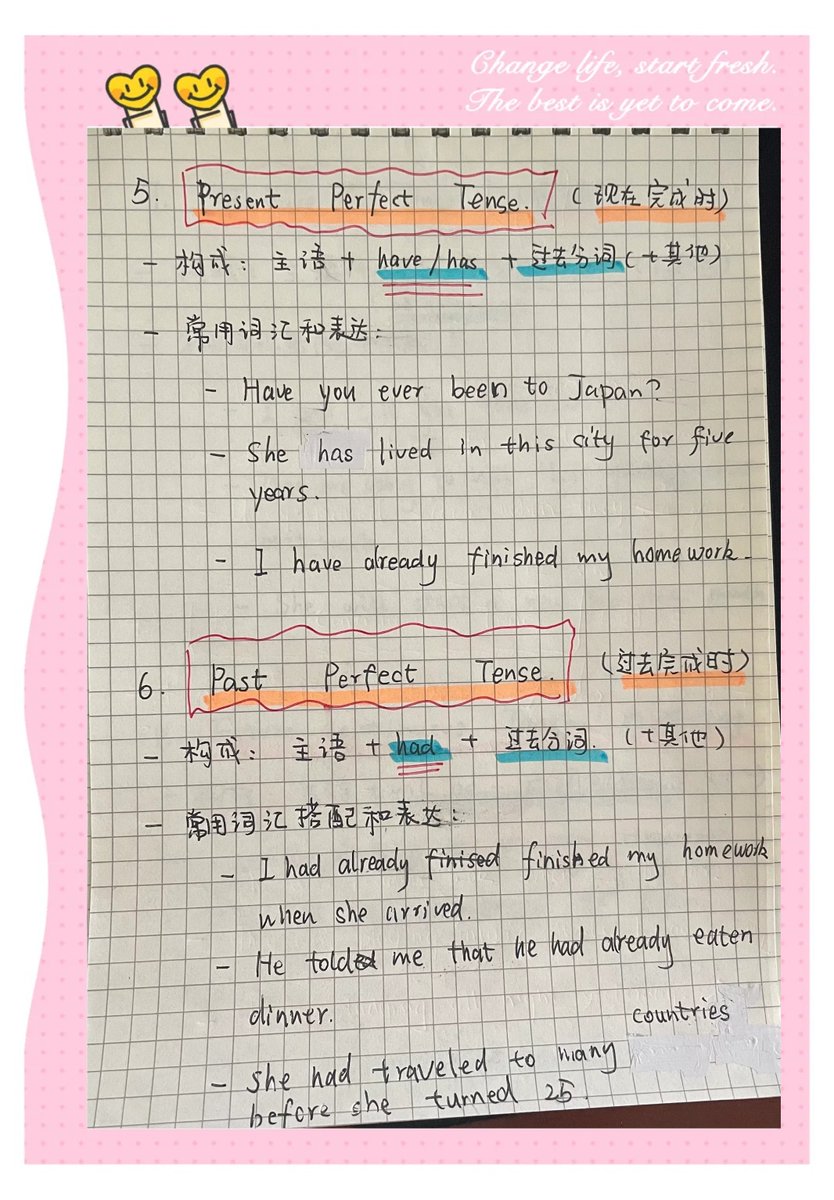 Change life, start fresh.
The best is yet to come.
5. Present Perfect Tense. (现在完成时)
- 构成: 主语 + have/has + 过去分词 (+其他)
- 常用词汇和表达:
- Have you ever been to Japan?
- She has lived in this city for five
years.
- I have already finished my homework.
6. Past Perfect Tense. (过去完成时)
- 构成: 主语 + had + 过去分词. (+其他)
- 常用词汇搭配和表达:
- I had already finised finished my homework
when she arrived.
- He told me that he had already eaten
dinner.
- She had traveled to many countries
before she turned 25.